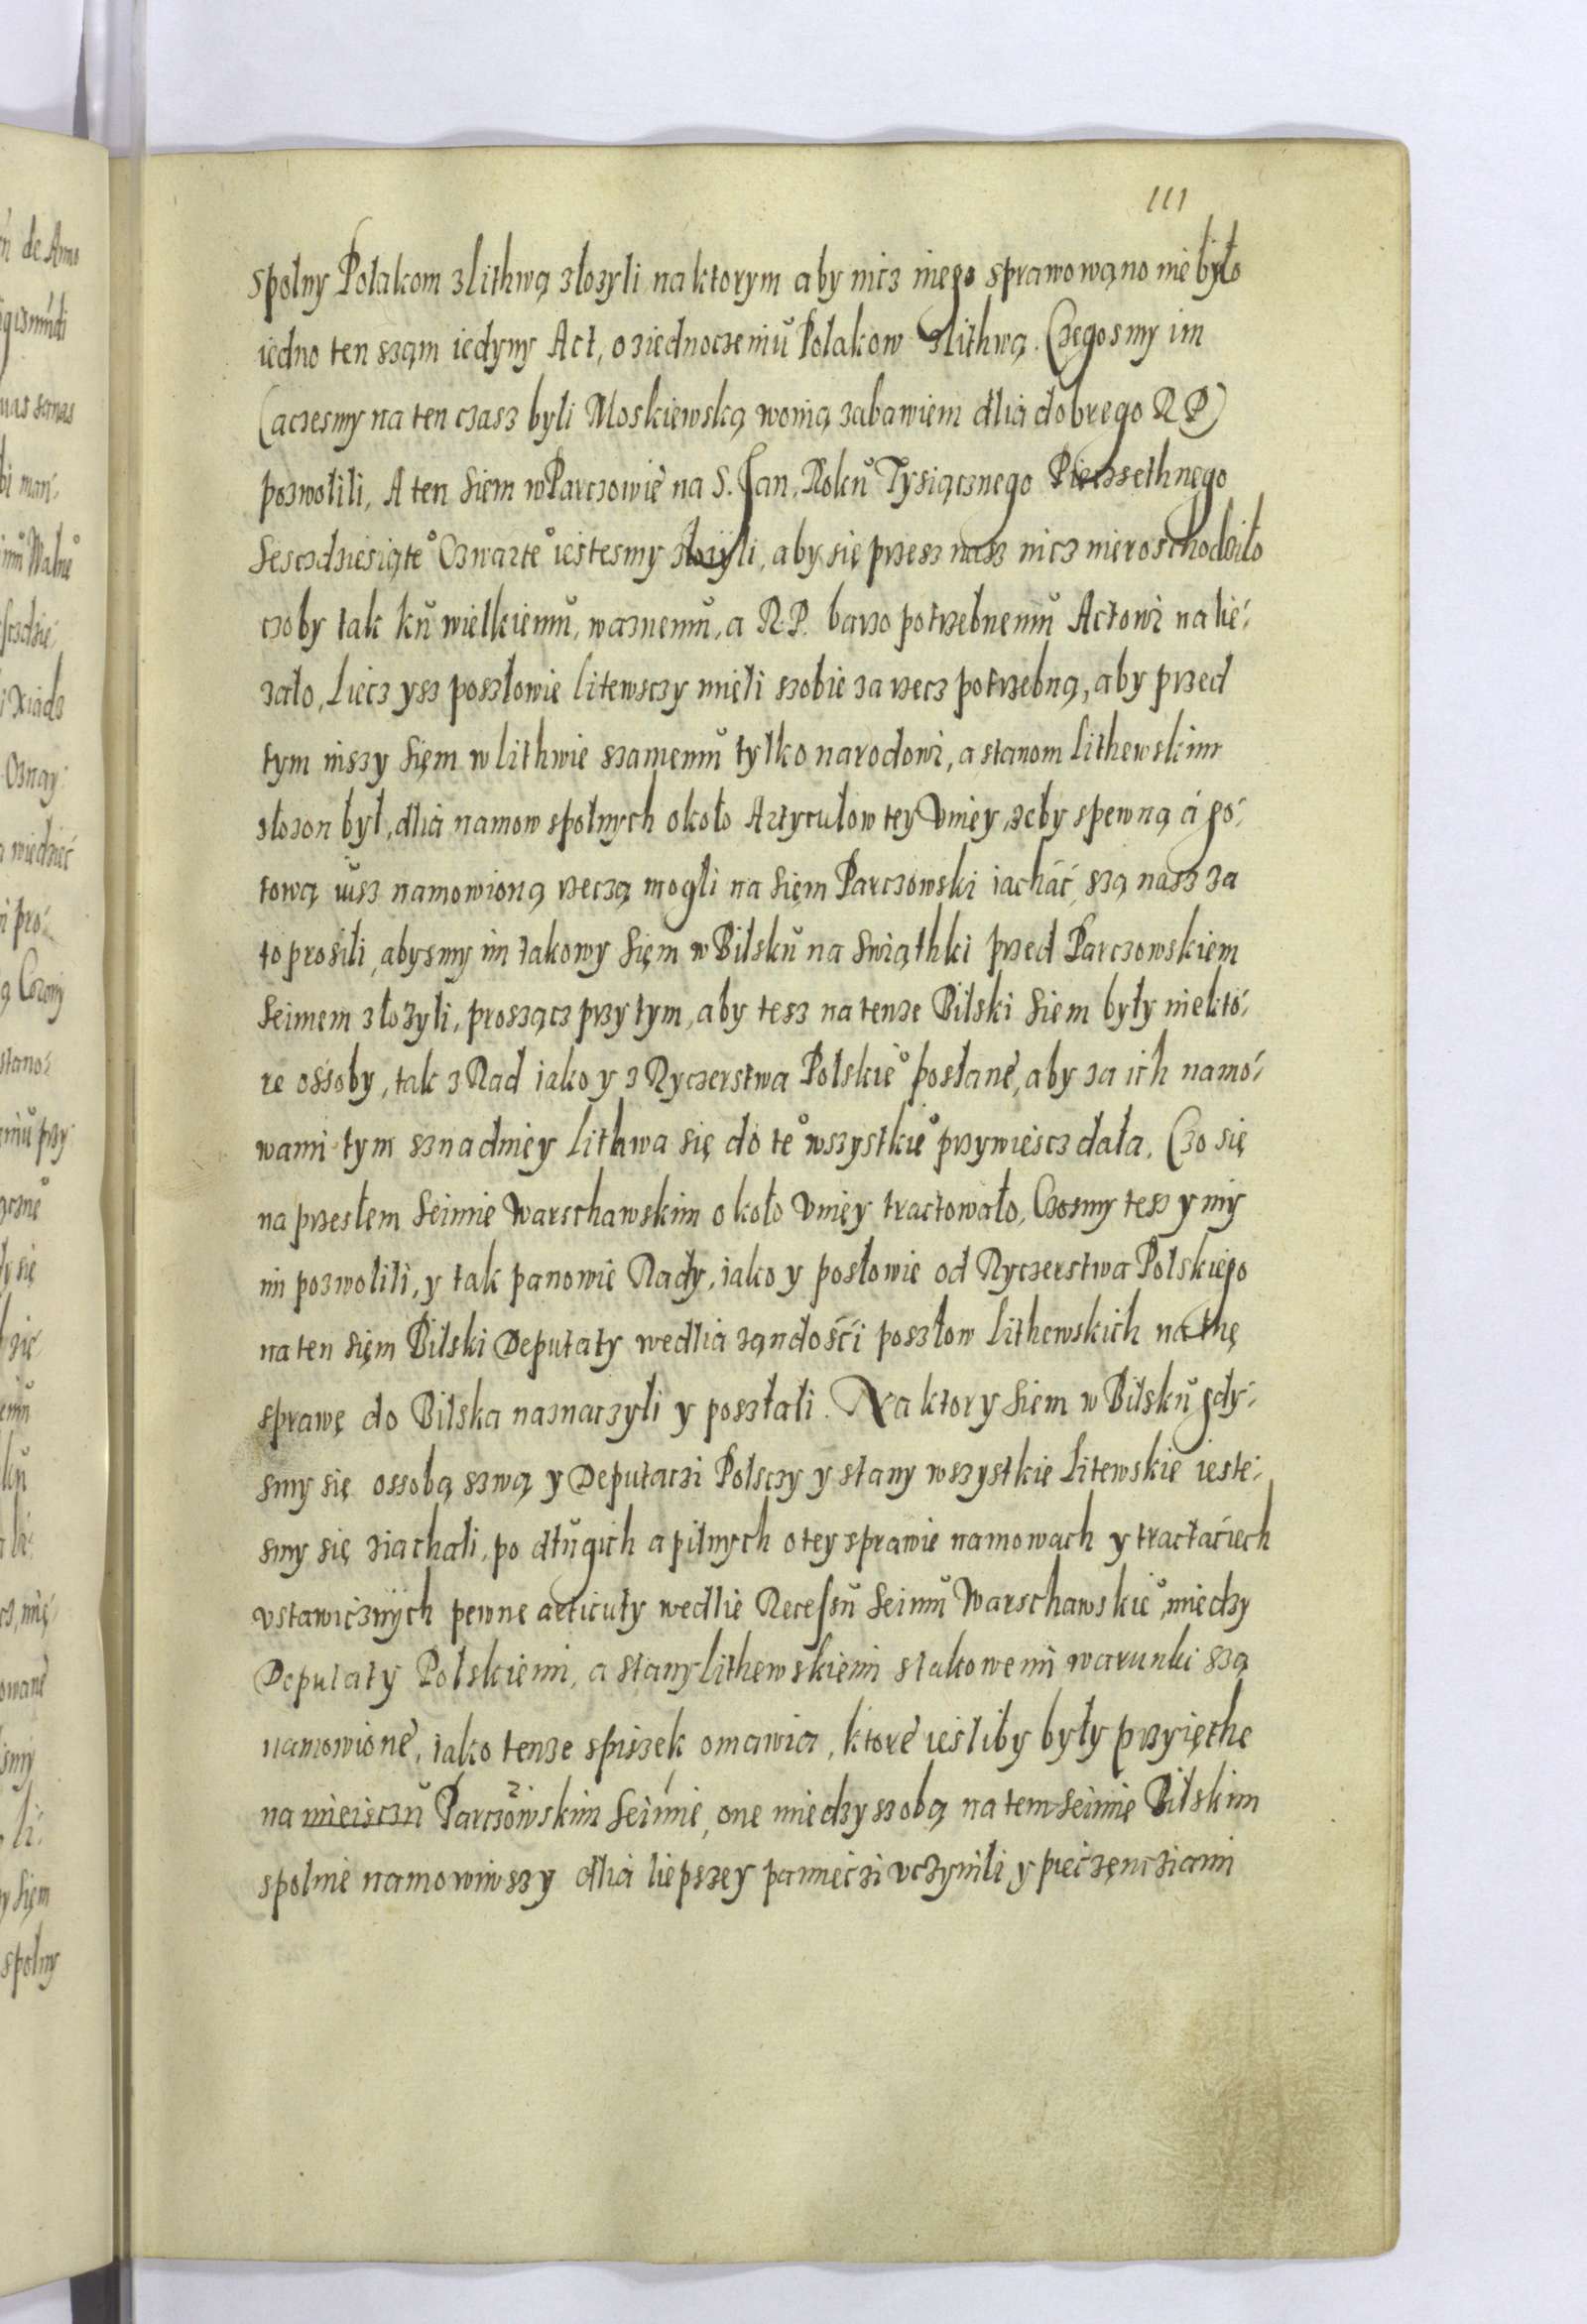 111
spolny Polakom z Lithwą złozyli na ktorym aby nicz inego sprawowąno nie było
iedno ten sząm iedyny Act, o ziednoczeniu Polakow z Lithwą. Czegosmy im
(aczesmy na ten czasz byli Moskiewską woiną zabawieni dlia dobrego R P)
pozwolili, A ten Siem w Parczowie na S. Jan. Roku Tysiącznego Piecssethnego
Sesczdziesiąteo Czwarteo iestesmy złozyli, aby się przesz nasz nicz nieroschodziło
czoby tak ku wielkiemu, waznemu, a R.P. barzo potrzebnemu Actowi nalie-
zało, Liecz ysz poszłowie Litewsczy mieli szobie za rzecz potrzebną, aby przed
tym inszy Sięm w Lithwie szamemu tylko narodowi, a stanom Lithewskim
złozon był, dlia namow spolnych około Artyculow tey Uniey, zeby s pewną a go-
tową iusz namowioną rzeczą mogli na Sięm Parczowski iachać, szą nasz za
to prosili, abysmy im takowy Sięm w Bilsku na Swiąthki przed Parczowskiem
Seimem złozyli, prosząc przy tym, aby tesz na tenze Bilski Siem były niekto-
re ossoby, tak z Rad iako y z Ryczerstwa Polskieo posłane, aby za ich namo-
wami tym sznadniey Lithwa się do teo wszystkieo przywiescz dała. Czo się
na przesłem Seimie Warschawskim około Uniey tractowało, Czosmy tesz y my
im pozwolili, y tak panowie Rady, iako y posłowie od Ryczerstwa Polskiego
na ten Sięm Bilski Deputaty wedlia ządości poszłow Lithewskich na thę
sprawę do Bilska naznaczyli y poszłali. Na ktory Siem w Bilsku gdy-
smy się ossobą szwą y Deputaczi Polsczy y stany wszystkie Litewskie ieste-
smy się ziachali, po długich a pilnych o tey sprawie namowach y tractaciech
ustawicznych pewne articuły wedlie Recessu Seimu Warschawskieo, miedzy
Deputaty Polskiemi, a stany Lithewskiemi s takowemi warunki szą
namowione, iako tenze spiszek omawia, ktore iesliby były przyięthe
na mieisczu Parczowskim Seimie, one miedzy szobą na tem Seimie Bilskim
spolnie namowiwszy dlia liepszey pamieczi uczynili y pieczęncziami